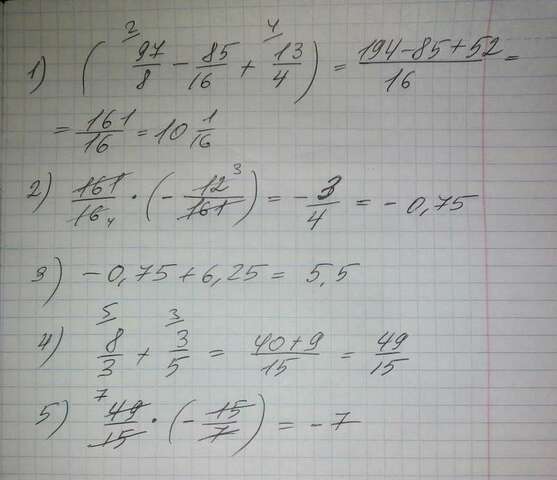 1) ( 2/ 97/8 - 85/16 + 4/ 13/4 ) = (194-85+52)/16 =
= 161/16 = 10 1/16
2) 161/16 4 · (- 12 3/161) = - 3/4 = - 0,75
3) - 0,75 + 6,25 = 5,5
4) 5/ 8/3 + 3/ 3/5 = (40+9)/15 = 49/15
5) 7 49/15 · (- 15/7) = - 7